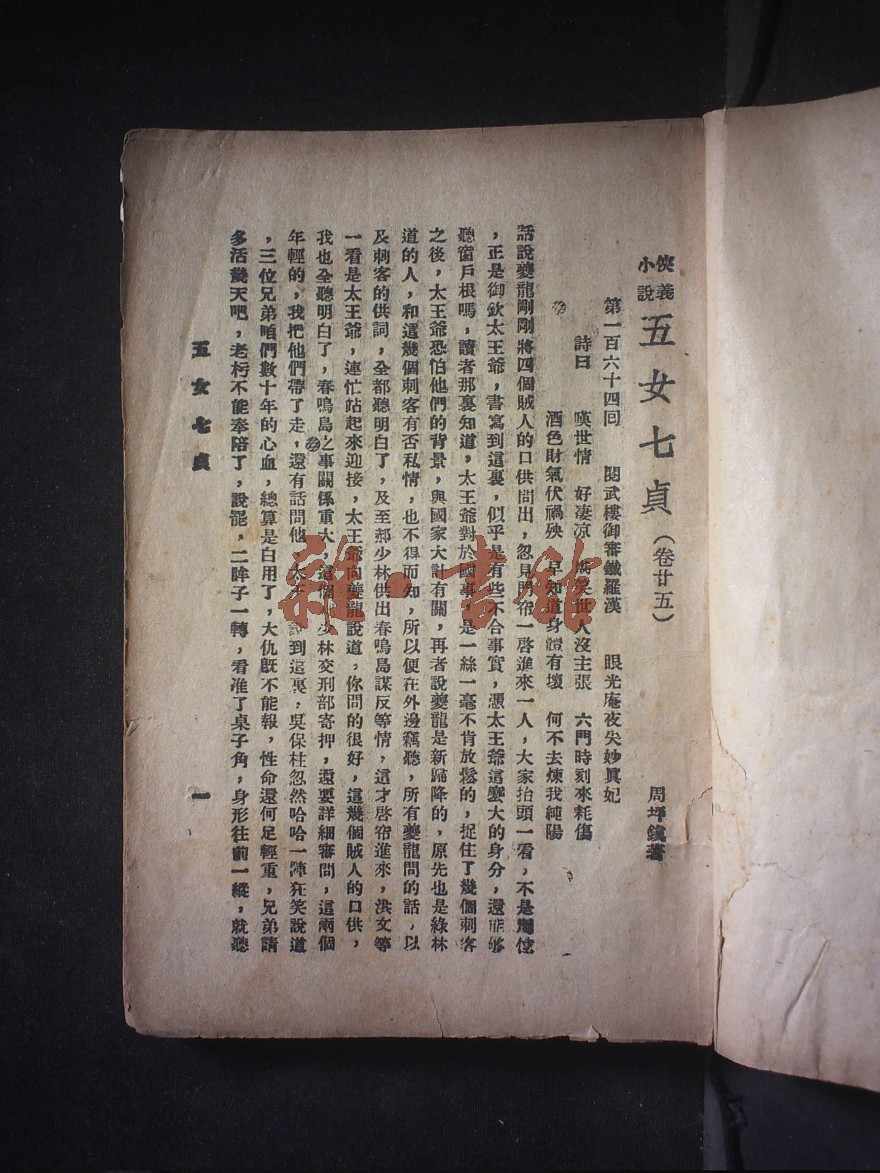 俠義小說 五女七貞（卷廿五） 周坪鎮著
第一百六十四回 閱武樓御審鐵羅漢 眼光庵夜失妙眞妃
詩曰 嘆世情 好凄凉 世人沒主張 六門時刻來耗傷
酒色財氣伏禍殃 早知道身體有壞 何不去煉我純陽
話說夔龍剛剛將四個賊人的口供問出，忽見門帘一啓進來一人，大家抬頭一看，不是別位
，正是御欽太王爺，書寫到這裏，似乎是有些不合事實，憑太王爺這麽大的身分，還能够
聽窗戶根嗎，讀者那裏知道，太王爺對於國事，是一絲一毫不肯放鬆的，捉住了幾個刺客
之後，太王爺恐怕他們的背景，與國家大計有關，再者說夔龍是新歸降的，原先也是綠林
道的人，和這幾個刺客有否私情，也不得而知，所以便在外邊竊聽，所有夔龍問的話，以
及刺客的供詞，全都聽明白了，及至郝少林供出春鳴島謀反等情，這才啓帘進來，洪文等
一看是太王爺，連忙站起來迎接，太王爺向夔龍說道，你問的很好，這幾個賊人的口供，
我也全聽明白了，春鳴島之事關係重大，這個 少林交刑部寄押，還要詳細審問，這兩個
年輕的，我把他們帶了走，還有話問他，太王 到這裏，吳保柱忽然哈哈一陣狂笑說道
，三位兄弟咱們數十年的心血，總算是白用了，大仇旣不能報，性命還何足輕重，兄弟請
多活幾天吧，老朽不能奉陪了，說罷，二眸子一轉，看准了桌子角，身形往前一縱，就聽
五女七貞 一
雜·書館